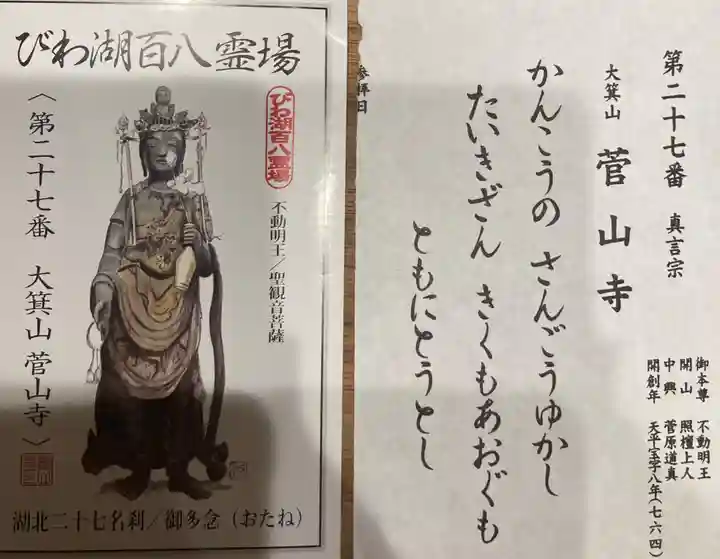 びわ湖百八霊場
びわ湖百八霊場
不動明王/聖観音菩薩
〈第二十七番 大箕山 菅山寺〉
湖北二十七名刹/御多念(おたね)
第二十七番 真言宗
大箕山 菅山寺
かんこうの さんごうゆかし
たいきざん きくもあおぐも
ともにとうとし
御本尊 不動明王
開山 照檀上人
中興 菅原道真
開創年 天平宝字八年(七六四)
参拝日